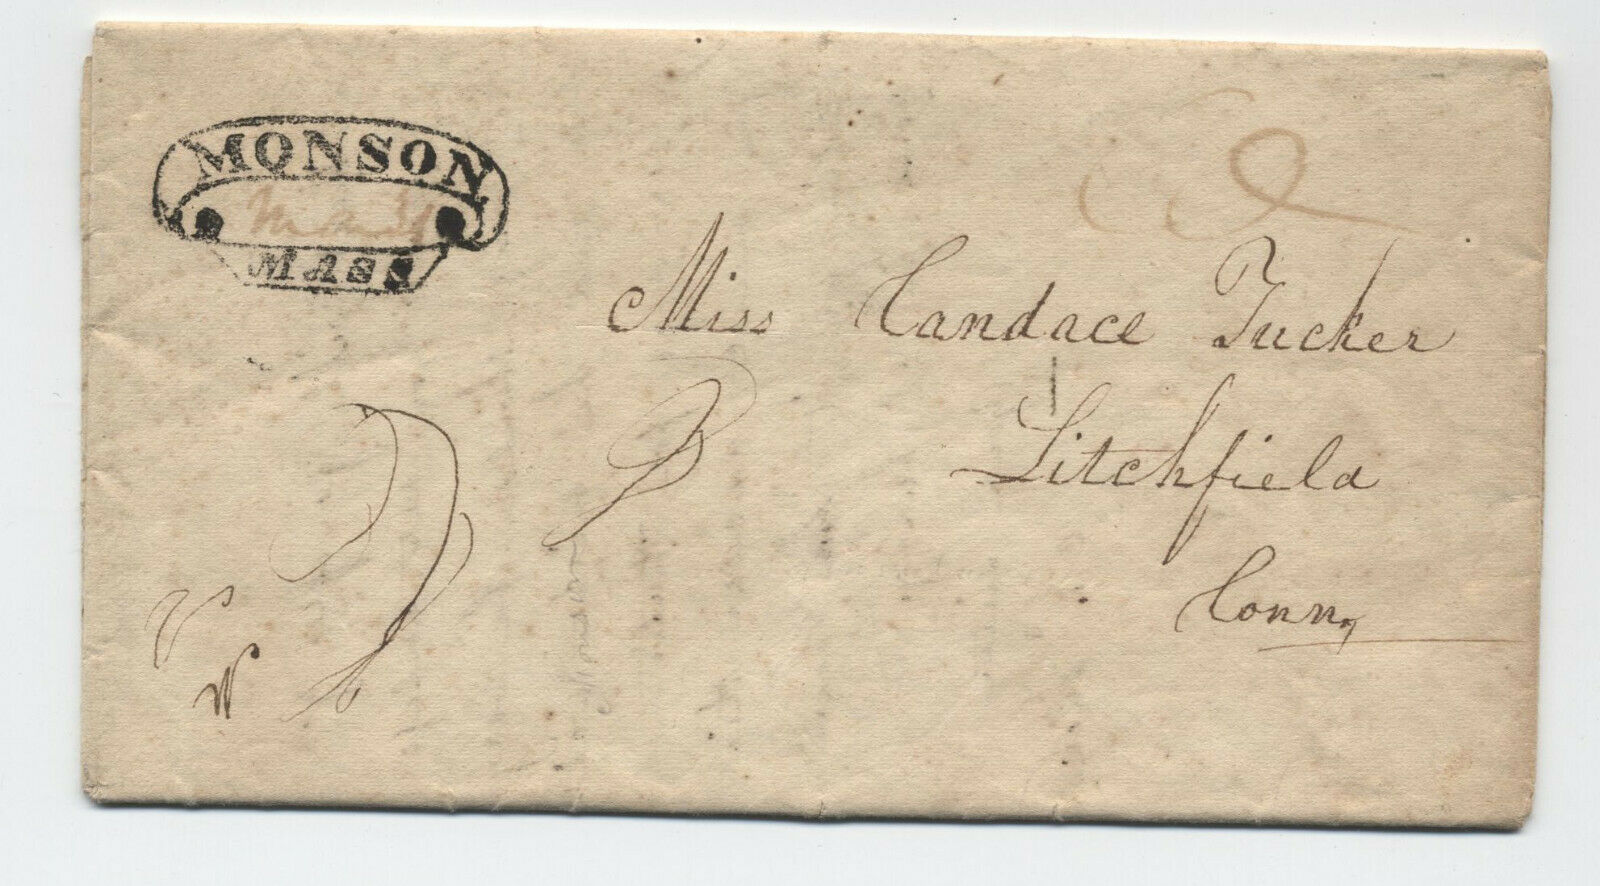 MONSON
MASS
Miss Candace Tucker
Litchfield
Conn,